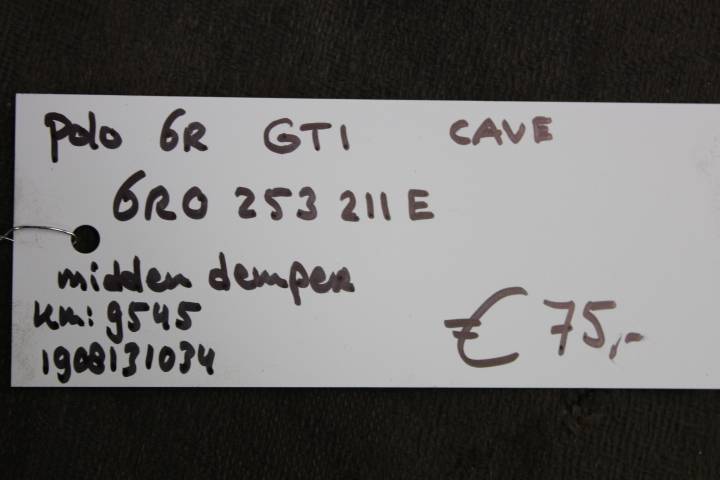 Polo 6R GTI CAVE
6R0 253 211 E
midden demper
km: 9545
1908131034
€ 75,-